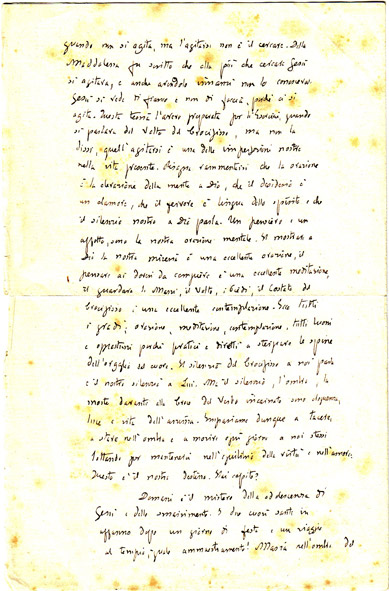 quando non si agita, ma l'agitarsi non è il cercare. Della
Maddalena fu scritto che alla più che cercare Gesù
si agitava, e anche avendolo innanzi non lo conosceva.
Gesù si vede di e non di perché ci si
agita. Questo tema l'avevo preparato per quando
si parlava del Volto da Crocifisso, ma non la
dissi, quell'agitarsi è una delle imperfezioni nostre
nella vita presente. Bisogna rammentarsi che la orazione
è la elevazione della mente a Dio, che il desiderio è
un clamore, che il fervore è lingua dello spirito e che
il silenzio nostro a Dio parla. Un pensiero e un
affetto, sono la nostra orazione mentale. Il mostrare a
Dio la nostra miseria è una eccellente orazione, il
pensare ai doveri da compiere è una eccellente meditazione,
il guardare le Mani, il Volto, i Piedi, il Costato del
Crocifisso è una eccellente contemplazione. Ecco tutti
i gradi: orazione, meditazione, contemplazione, tutti buoni
e perché pratici e diretti a sterpare le spine
dell'orgoglio dal cuore. Il silenzio del Crocifisso a noi parla
e il nostro silenzio a Lui. Ma il silenzio, l'ombra, la
morte davanti alla Croce del Verbo incarnato sono eloquenza,
luce e vita dell'anima. Impariamo dunque a tacere,
a stare nell'ombra e a morire ogni giorno a noi stessi
lottando per mantenerci nell'equilibrio delle virtù e nell'amore.
Questo è il nostro destino. Hai capito?
Domani è il mistero della di
Gesù e dello smarrimento. I due cuori santi in
affanno dopo un giorno di festa e un viaggio
al tempio; quale ammaestramento! Maria nell'ombra del